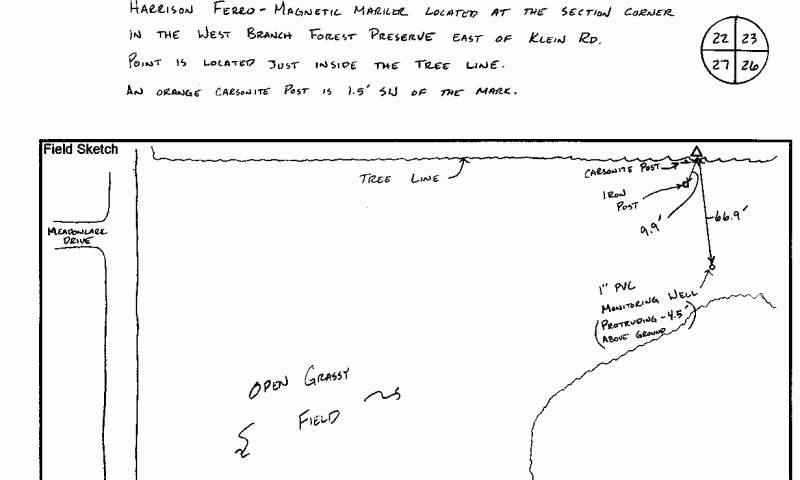 HARRISON FERRO-MAGNETIC MARKER LOCATED AT THE SECTION CORNER
IN THE WEST BRANCH FOREST PRESERVE EAST OF KLEIN RD.
POINT IS LOCATED JUST INSIDE THE TREE LINE.
AN ORANGE CARSONITE POST IS 1.5' SW OF THE MARK.
22 23
27 26
Field Sketch
TREE LINE
CARSONITE POST
IRON
POST
9.9'
66.9'
MEADOWLARK
DRIVE
1" PVC
MONITORING WELL
(PROTRUDING ~4.5'
ABOVE GROUND)
OPEN GRASSY
FIELD